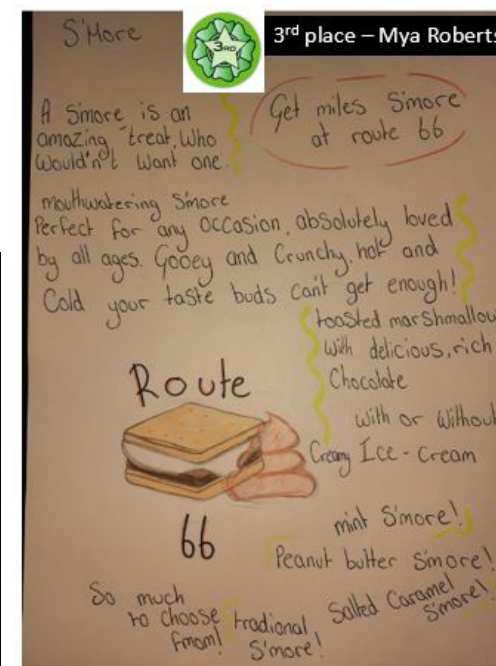 S'More
3RD
3rd place – Mya Roberts
A S'more is an
amazing treat. Who
Wouldn't Want one.
Get miles S'more
at route 66
mouthwatering S'more
Perfect for any occasion, absolutely loved
by all ages. Gooey and Crunchy, hot and
Cold your taste buds can't get enough!
toasted marshmallow
With delicious, rich
Chocolate
with or Without
Creamy Ice - Cream
Route
66
mint S'more!
Peanut butter S'more!
Salted Caramel
S'more!
So much
to choose
from!
tradional
S'more!